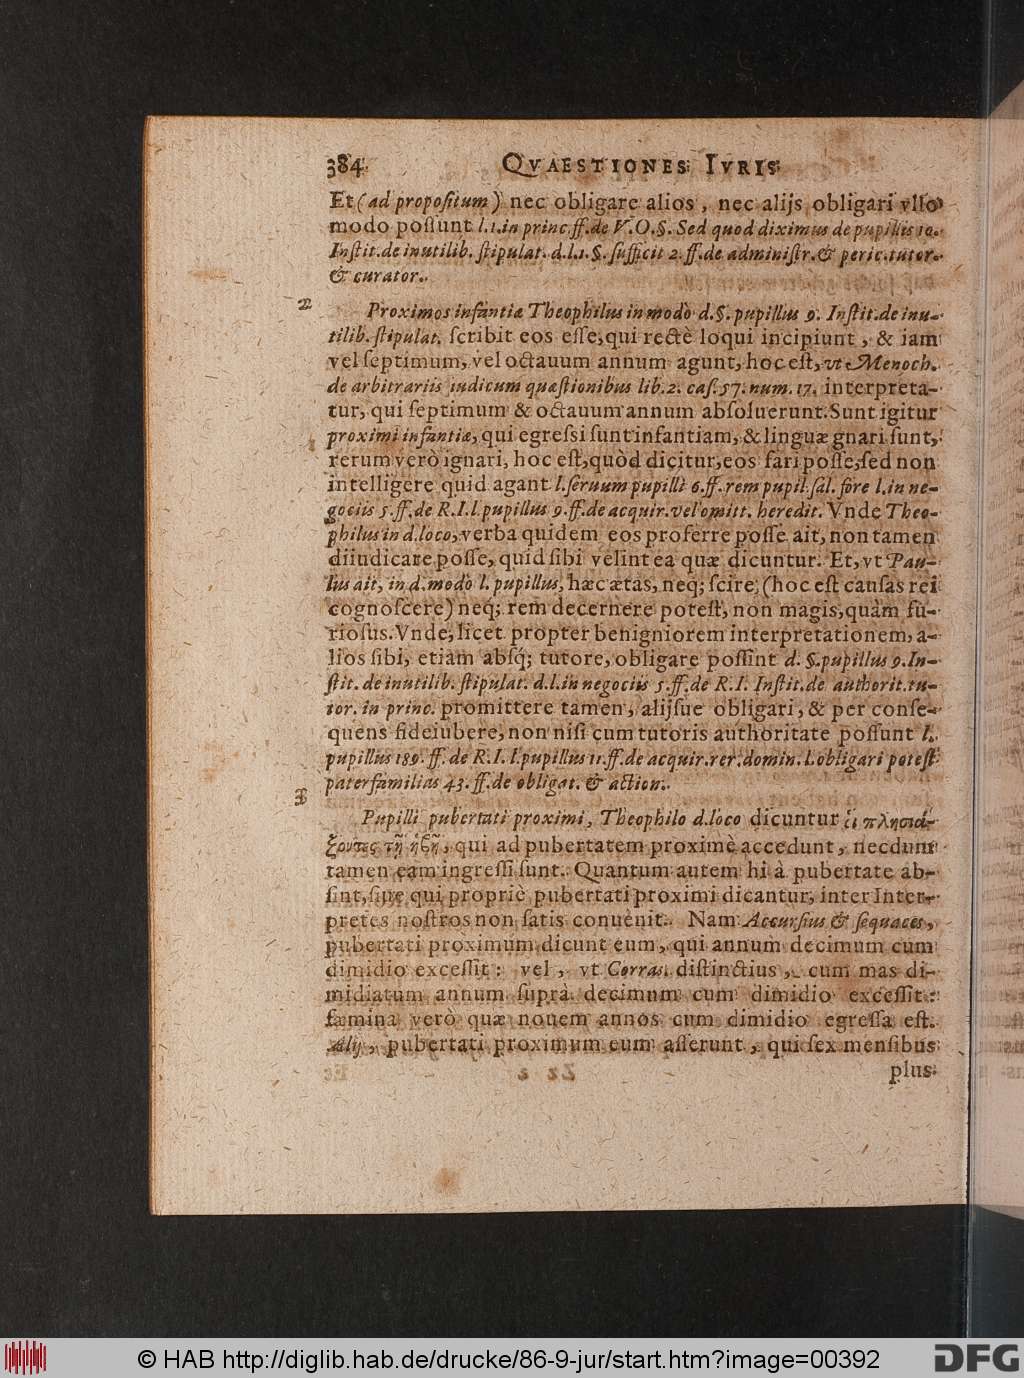 384 QVAESTIONES IVRIS
Et (ad propositum) nec obligare alios, nec alijs obligari vllo
modo possunt l.1.in princ.ff.de V.O.§. Sed quod diximus de pupillis 10.
Instit.de inutilib. stipulat. d.l.1.§. sufficit 2.ff.de administr.& peric.tutor.
& curator.
22
Proximos infantiæ Theophilus in modò d.§. pupillus 9. Instit.de inu-
tilib.stipulat. scribit eos esse, qui rectè loqui incipiunt, & iam
vel septimum, vel octauum annum agunt, hoc est, vt Menoch.
de arbitrariis iudicum quæstionibus lib.2. cas.57.num.17. interpreta-
tur, qui septimum & octauum annum absoluerunt. Sunt igitur
proximi infantiæ, qui egressi sunt infantiam, & linguæ gnari sunt,
rerum verò ignari, hoc est, quòd dicitur, eos fari posse, sed non
intelligere quid agant l.seruum pupilli 6.ff.rem pupil.sal. fore l.in ne-
gociis 5.ff.de R.I.l.pupillus 9.ff.de acquir.vel omitt. heredit. Vnde Theo-
philus in d.loco, verba quidem eos proferre posse ait, non tamen
diiudicare posse, quid sibi velint ea quæ dicuntur. Et, vt Pau-
lus ait, in d.modò l.pupillus, hæc ætas, neq; scire, (hoc est causas rei
cognoscere) neq; rem decernere potest, non magis, quàm fu-
riosus. Vnde, licet propter benigniorem interpretationem, a-
lios sibi, etiam absq́; tutore, obligare possint d. §.pupillus 9.In-
stit. de inutilib. stipulat. d.l.in negociis 5.ff.de R.I. Instit.de authorit.tu-
tor. in princ. promittere tamen, alijsue obligari, & per conse-
quens fideiubere, non nisi cum tutoris authoritate possunt l.
pupillus 189.ff. de R.I.l.pupillus 11.ff.de acquir.rer.domin.l.obligari potest
paterfamilias 43.ff.de obligat. & action.
33
Pupilli pubertati proximi, Theophilo d.loco dicuntur ὁι πλησιά-
ζοντες τῇ ἥβῃ, qui ad pubertatem proximè accedunt, necdum
tamen eam ingressi sunt. Quantum autem hi à pubertate ab-
sint, siue qui propriè pubertati proximi dicantur, inter Inter-
pretes nostros non satis conuenit. Nam Accursius & sequaces,
pubertati proximum dicunt eum, qui annum decimum cum
dimidio excessit: vel, vt Corras. distinctius, cum mas di-
midiatum annum suprà decimum cum dimidio excessit:
fæmina verò quæ nouem annos cum dimidio egressa est.
Alij, pubertati proximum eum asserunt, qui sex mensibus
plus
© HAB http://diglib.hab.de/drucke/86-9-jur/start.htm?image=00392 DFG